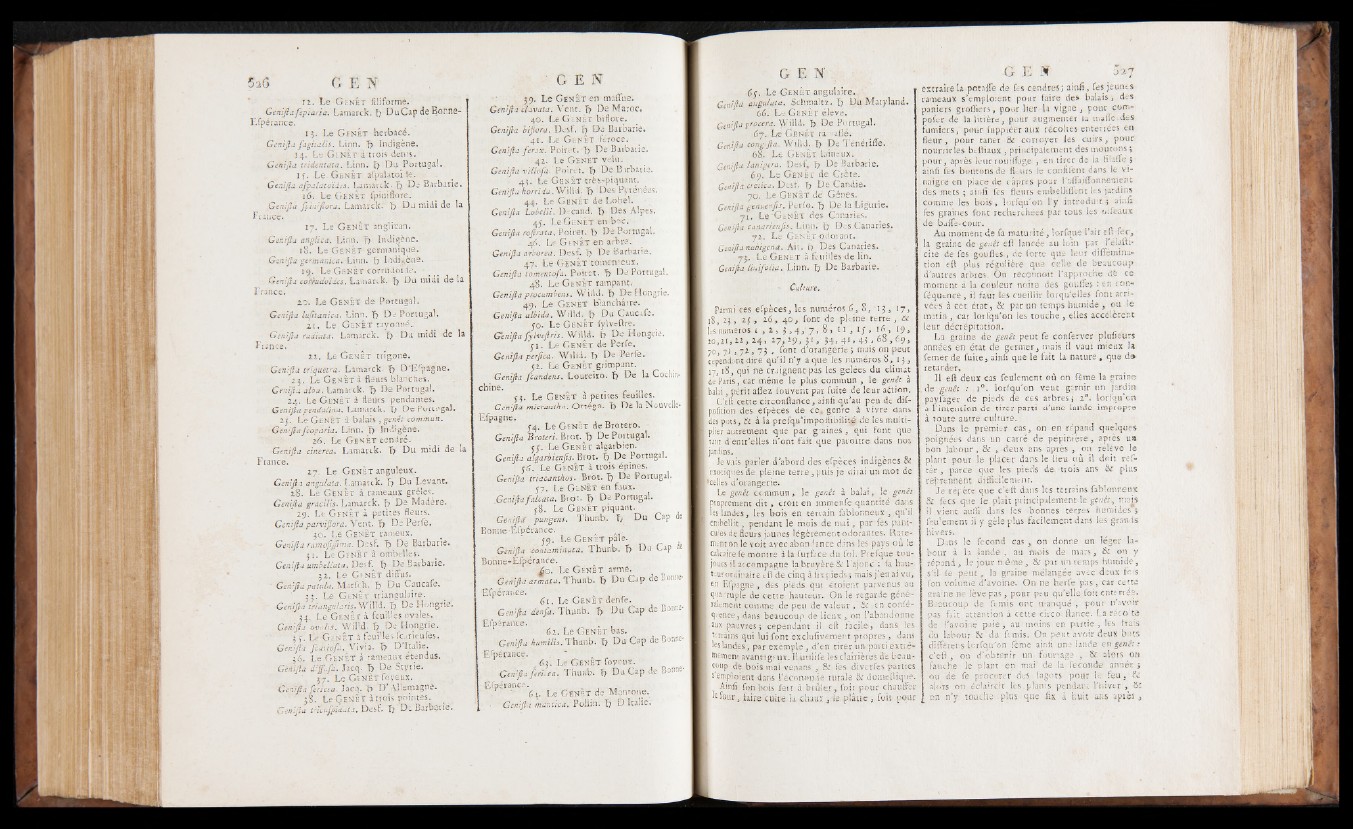 526 GEN
12. Le GENÊT filiforme.
Genista sepiaria. Lamarck. ♄ Du Cap de Bonne-
Espérance.
13. Le GENÊT herbacé.
Genista sagitalis. Linn. ♄ Indigène.
14. Le GENÊT à trois dents.
Genista tridentata. Linn. ♄ Du Portugal.
15. Le GENÊT aspalatoïde.
Genista aspalatoides. Lamarck. ♄ De Barbarie.
16. Le GENÊT spiniflore.
Genista spiniflora. Lamarck. ♄ Du midi de la
France.
17. Le GENÊT anglican.
Genista anglica. Linn. ♄ Indigène.
18. Le GENÊT germanique.
Genista germanica. Linn. ♄ Indigène.
19. Le GENÊT
Genista Lamarck. ♄ Du midi de la
France.
20. Le GENÊT de Portugal.
Genista lusitanica. Linn. ♄ De Portugal.
21. Le GENÊT rayonné.
Genista radiata. Lamarck. ♄ Du midi de la
France.
22. Le GENÊT trigone.
Genista triquetra. Lamarck ♄ D'Espagne.
23. Le GENÊT à fleurs blanches.
Genista alba. Lamarck. ♄ De Portugal.
24. Le GENÊT à fleurs pendantes.
Genista pendulina. Lamarck. ♄ De Portugal.
25. Le GENÊT à balais, genêt commun.
Genista scoparia. Linn. ♄ Indigène.
26. Le GENÊT cendré.
Genista cinerea. Lamarck. ♄ Du midi de la
France.
27. Le GENÊT anguleux.
Genista angulata. Lamarck. ♄ Du Levant.
28. Le GENÊT à rameaux grêles.
Genista gracilis. Lamarck. ♄ De Madère.
29. Le GENÊT à petites fleurs.
Genista parviflora. Vent. ♄ De Perse.
30. Le GENÊT rameux.
Genista ramosissima. Desf. ♄ De Barbarie.
31. Le GENÊT à ombelles.
Genista umbellata. Desf. ♄ De Barbarie.
32. Le GENÊT diffus.
Genista patula. Marsch. ♄ Du Caucase.
33. Le GENÊT triangulaire.
Genista triangularis. Willd. ♄ De Hongrie.
34. Le GENÊT à feuilles ovales.
Genista ovata. Willd. ♄ De Hongrie.
35. Le GENÊT à feuilles
Genista Vivia. ♄ D'Italie.
36. Le GENÊT à rameaux étendus.
Genista diffusa. Jacq. ♄ De Styrie.
37. Le GENÊT soyeux.
Genista sericea. Jacq. ♄ D'Allemagne.
38. Le GENÊT à trois pointes.
Genista tricuspidata. Desf. ♄ De Barbarie.
GEN
39. Le GENÊT en massue.
Genista clavata. Vent. ♄ De Maroc.
40. Le GENÊT biflore.
Genista biflora. Desf. ♄ De Barbarie.
41. Le GENÊT féroce.
Genista ferox. Poiret. ♄ De Barbarie.
42. Le GENÊT velu.
Genista villosa. Poiret. ♄ De Barbarie.
43. Le GENÊT très-piquant.
Genista horrida. Willd. ♄ Des Pyrénées.
44. Le GENÊT de Lobel.
Genista Lobelii. Decand. ♄ Des Alpes.
45. Le GENÊT en bec.
Genista rostrata. Poiret. ♄ De Portugal.
46. Le GENÊT en arbre.
Genista arborea. Desf. ♄ De Barbarie.
47. Le GENÊT tomenteux.
Genista tomentosa. Poiret. ♄ De Portugal.
48. Le GENÊT rampant.
Genista procumbens. Willd. ♄ De Hongrie.
49. Le GENÊT blanchâtre.
Genista albida. Willd. ♄ Du Caucase.
50. Le GENÊT sylvestre.
Genista sylvestris. Willd. ♄ De Hongrie.
51. Le GENÊT de Perse.
Genista persica. Willd. ♄ De Perse.
52. Le GENÊT grimpant.
Genista scandens. Loureiro. ♄ De la Cochin-
chine.
53. Le GENÊT à petites feuilles.
Genista micrantha. Ortéga. ♄ De la Nouvelle-
Espagne.
54. Le GENÊT de Brotero.
Genista Broteri. Brot. ♄ De Portugal.
55. Le GENÊT algarbien.
Genista algarbiensis. Brot. ♄ De Portugal.
56. Le GENÊT à trois épines.
Genista triacanthos. Brot. ♄ De Portugal.
57. Le GENÊT en faux.
Genista falcata. Brot. ♄ De Portugal.
58. Le GENÊT piquant.
Genista pungens. Thunb. ♄ Du Cap de
Bonne-Espérance.
59. Le GENÊT pâle.
Genista contaminata. Thunb. ♄ Du Cap de
Bonne-Espérance.
60. Le GENÊT armé.
Genista armata. Thunb. ♄ Du Cap de Bonne-
Espérance.
61. Le GENÊT dense.
Genista densa. Thunb. ♄ Du Cap de Bonne-
Espérance.
62. Le GENÊT bas.
Genista humilis. Thunb. ♄ Du Cap de Bonne-
Espérance.
63. Le GENÊT soyeux.
Genista sericea. Thunb. ♄ Du Cap de Bonne-
Espérance.
64. Le GENÊT de Mantoue.
Genista mantica. Pollin. ♄ D'Italie.
GEN
65. Le GENÊT angulaire.
Genista angulata. Schmaltz. ♄ Du Maryland.
66. Le GENÊT élevé.
Genista procera. Willd. ♄ De Portugal.
67. Le GENÊT ramassé.
Genista congesta. Willd. ♄ De Ténériffe.
68. Le GENÊT laineux.
Genista lanigera. Desf. ♄ De Barbarie.
69. Le GENÊT de Crète.
Genista cretica. Desf. ♄ De Candie.
70. Le GENÊT de Gênes.
Genista genuensis. Perso. ♄ De la Ligurie.
71. Le GENÊT des Canaries.
Genista canariensis. Linn. ♄ Des Canaries.
72. Le GENÊT odorant.
Genista nubigena. Ait. ♄ Des Canaries.
73. Le GENÊT à feuilles de lin.
Genista linifolia. Linn. ♄ De Barbarie.
Culture.
Parmi ces espèces, les numéros 6, 8, 13, 17,
18, 23, 25, 26, 40, sont de pleine terre, &
les numéros 1, 2, 3, 4, 7, 8, 11, 15, 16, 19,
20, 21, 22, 24, 27, 29, 31, 34, 41, 43, 68, 69,
70, 71, 72, 73, sont d'orangerie; mais on peut
cependant dire qu'il n'y a que les numéros 8, 13,
17, 18, qui ne craignent pas les gelées du climat
de Paris, car même le plus commun, le genêt à
balai, périt assez souvent par suite de leur action.
C'est cette circonstance, ainsi qu'au peu de dis-
position des espèces de ce genre à vivre dans
des pots, & à la presqu'impossibilité de les multi-
plier autrement que par graines, qui font que
tant d'entr'elles n'ont fait que paroître dans nos
jardins.
Je vais parler d'abord des espèces indigènes &
rustiques de pleine terre, puis je dirai un mot de
celles d'orangerie.
Le genêt commun, le genêt à balai, le genêt
proprement dit, croît en immense quantité dans
les landes, les bois en terrain sablonneux, qu'il
embellit, pendant le mois de mai, par ses pani-
cules de fleurs jaunes légèrement odorantes. Rare-
ment on le voit avec abondance dans les pays où le
calcaire se montre à la surface du sol. Presque tou-
jours il accompagne la bruyère & l'ajonc : sa hau-
teur ordinaire est de cinq à six pieds; mais j'en ai vu,
en Espagne, des pieds qui étoient parvenus au
quadruple de cette hauteur. On le regarde géné-
ralement comme de peu de valeur, & en consé-
quence, dans beaucoup de lieux, on l'abandonne
aux pauvres; cependant il est facile, dans les
terrains qui lui sont exclusivement propres, dans
les landes, par exemple, d'en tirer un parti extrê-
mement avantageux. Il utilise les clairières de beau-
coup de bois mal venans, & ses diverses parties
s'emploient dans l'économie rurale & domestique.
Ainsi son bois sert à brûler, soit pour chauffer
le four, faire cuire la chaux, le plâtre, soit pour
GEN 527
extraire la potasse de ses cendres; ainsi, ses jeunes
rameaux s'emploient pour faire des balais, des
paniers grossiers, pour lier la vigne, pour com-
poser de la litière, pour augmenter la masse des
fumiers, pour suppléer aux récoltes enterrées en
fleur, pour taner & corroyer les cuirs, pour
nourrir les bestiaux, principalement des moutons;
pour, après leur rouissage, en tirer de la filasse;
ainsi ses boutons de fleurs se confisent dans le vi-
naigre en place de câpres pour l'assaisonnement
des mets; ainsi ses fleurs embellissent les jardins
comme les bois, lorsqu'on l'y introduit; ainsi
ses graines sont recherchées par tous les oiseaux
de basse-cour.
Au moment de sa maturité, lorsque l'air est sec,
la graine de genêt est lancée au loin par l'élasti-
cité de ses gousses, de sorte que leur dissémina-
tion est plus régulière que celle de beaucoup
d'autres arbres. On reconnoît l'approche de ce
moment à la couleur noire des gousses : en con-
séquence, il faut les cueillir lorsqu'elles sont arri-
vées à cet état, & par un temps humide, ou le
matin, car lorsqu'on les touche, elles accélèrent
leur décrépitation.
La graine de genêt peut se conserver plusieurs
années en état de germer, mais il vaut mieux la
semer de suite, ainsi que le fait la nature, que de
retarder.
Il est deux cas seulement où on sème la graine
de genêt : 1°. lorsqu'on veut garnir un jardin
paysager de pieds de ces arbres; 2°. lorsqu'on
a l'intention de tirer parti d'une lande impropre
à toute autre culture.
Dans le premier cas, on en répand quelques
poignées dans un carré de pépinière, après un
bon labour, &, deux ans après, on relève le
plant pour le placer dans le lieu où il doit res-
ter, parce que les pieds de trois ans & plus
reprennent difficilement.
Je répète que c'est dans les terrains sablonneux
& secs que se plaît principalement le genêt, mais
il vient aussi dans les bonnes terres humides;
seulement il y gèle plus facilement dans les grands
hivers.
Dans le second cas, on donne un léger la-
bour à la lande, au mois de mars, & on y
répand, le jour même, & par un temps humide,
s'il se peut, la graine mélangée avec deux fois
son volume d'avoine. On ne herse pas, car cette
graine ne lève pas, pour peu qu'elle soit enterrée.
Beaucoup de semis ont manqué, pour n'avoir
pas fait attention à cette circonstance. La récolte
de l'avoine paie, au moins en partie, les frais
du labour & du semis. On peut avoir deux buts
différens lorsqu'on sème ainsi une lande en genêt :
c'est, ou d'obtenir un fourrage, & alors on
fauche le plant en mai de la seconde année;
ou de se procurer des fagots pour le feu, &
alors on éclaircit les plants pendant l'hiver, &
on n'y touche plus que six à huit ans après,